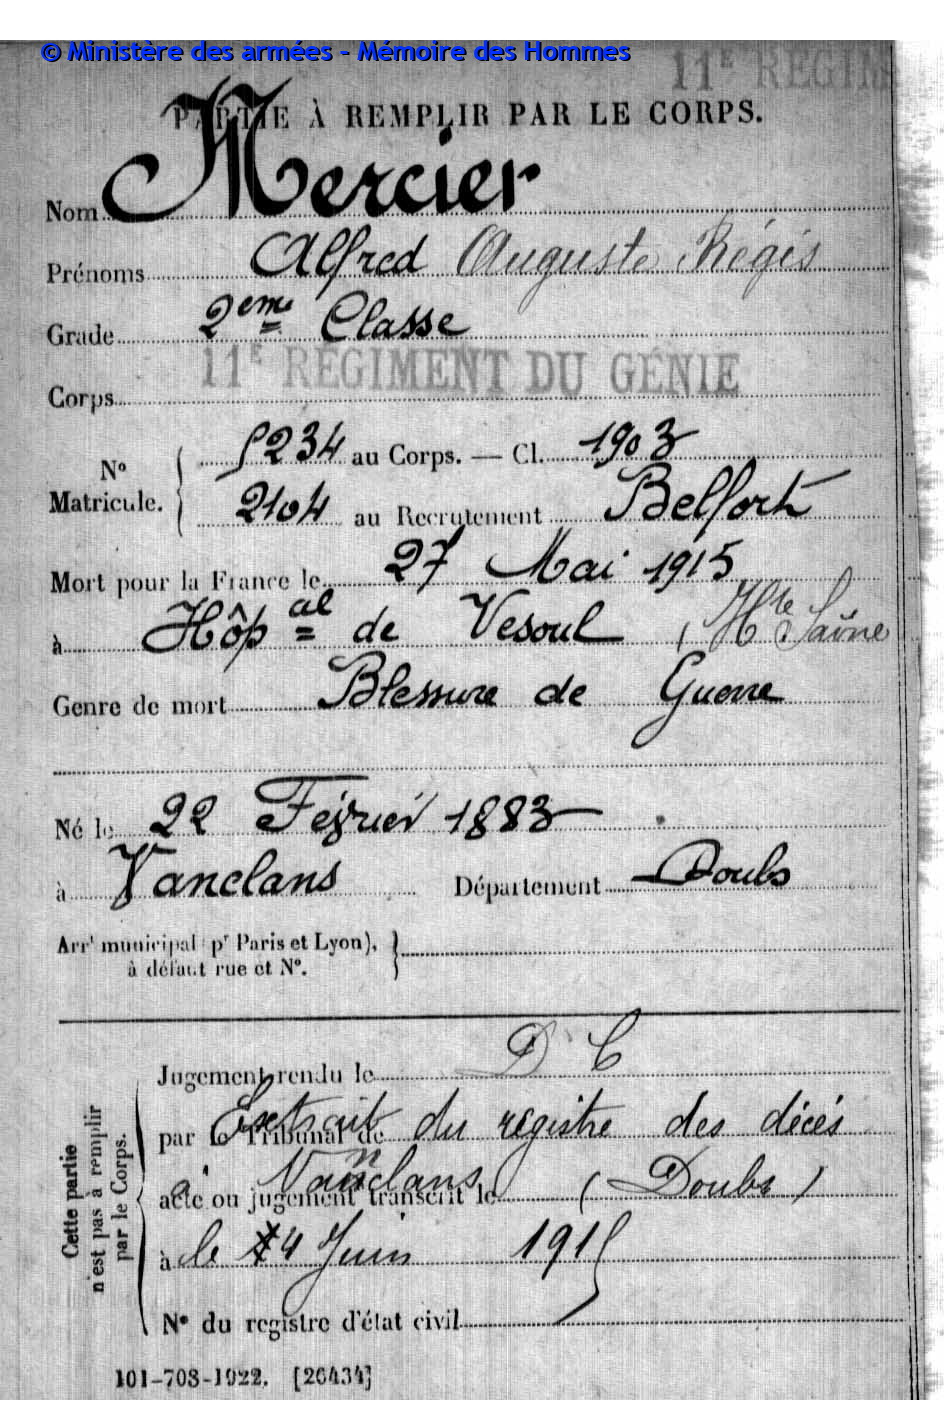 © Ministère des armées - Mémoire des Hommes
11E REGIM
PARTIE À REMPLIR PAR LE CORPS.
Nom Mercier
Prénoms Alfred Auguste Régis
Grade 2eme Classe
Corps 11E REGIMENT DU GÉNIE
No Matricule. { 5234 au Corps. — Cl. 1903
2104 au Recrutement Belfort
Mort pour la France le 27 Mai 1915
à Hôpal de Vesoul (Hte Saône
Genre de mort Blessure de Guerre
Né le 22 Février 1883
à Vanclans Département Doubs
Arrt municipal (pr Paris et Lyon),
à défaut rue et No.
Cette partie n'est pas à remplir par le Corps.
Jugement rendu le D C
par le Tribunal de Extrait du registre des décés
acte ou jugement transcrit le à Vanclans (Doubs)
à le 4 Juin 1915
No du registre d'état civil
101-708-1922. [26434]